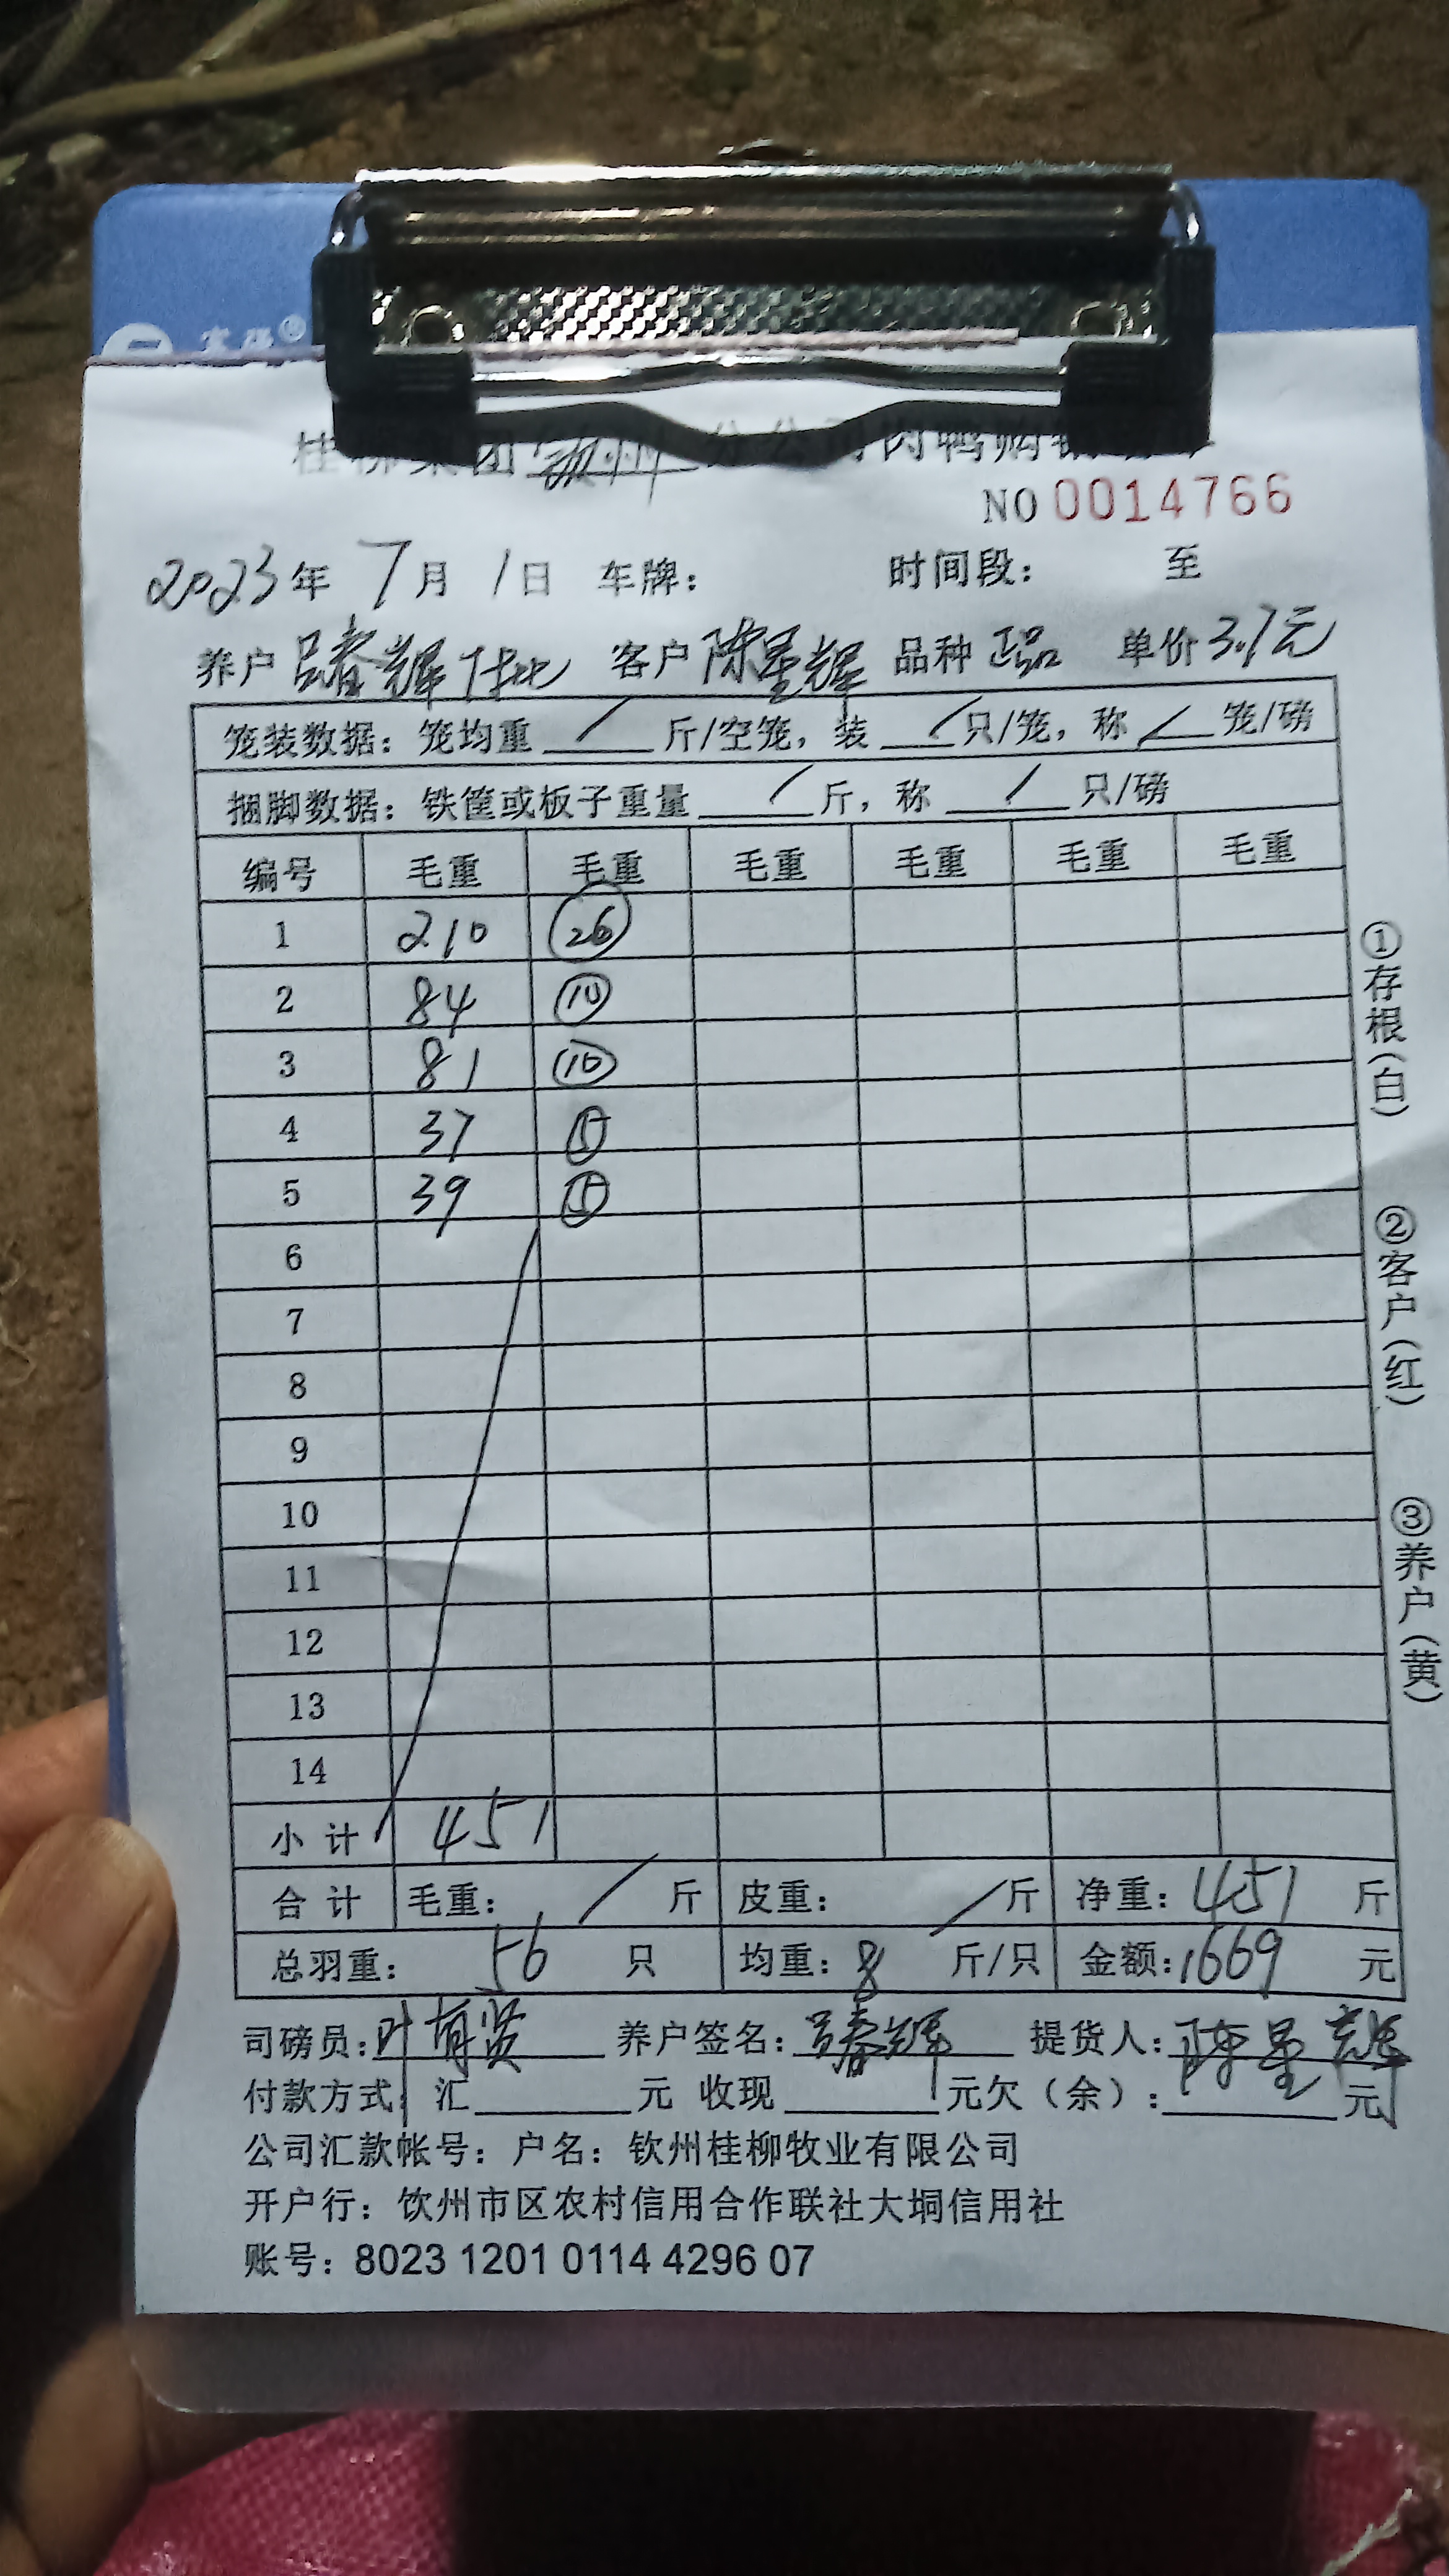 桂柳集团钦州分公司肉鸭购销
NO 0014766
2023年 7月 1日 车牌： 时间段： 至
养户 吕春辉 客户 陈星辉 品种 正品 单价 3.7元
笼装数据：笼均重 / 斤/空笼，装 / 只/笼，称 / 笼/磅
捆脚数据：铁筐或板子重量 / 斤，称 / 只/磅
编号 毛重 毛重 毛重 毛重 毛重 毛重
1 210 26
2 84 10
3 81 10
4 37 5
5 39 5
6
7
8
9
10
11
12
13
14
小计 451
合计 毛重： / 斤 皮重： / 斤 净重：451 斤
总羽重： 56 只 均重：8 斤/只 金额：1669 元
司磅员：叶有贤 养户签名：吕春辉 提货人：陈星辉
付款方式：汇 元 收现 元欠（余）： 元
公司汇款帐号：户名：钦州桂柳牧业有限公司
开户行：饮州市区农村信用合作联社大垌信用社
账号：8023 1201 0114 4296 07
①存根（白）
②客户（红）
③养户（黄）